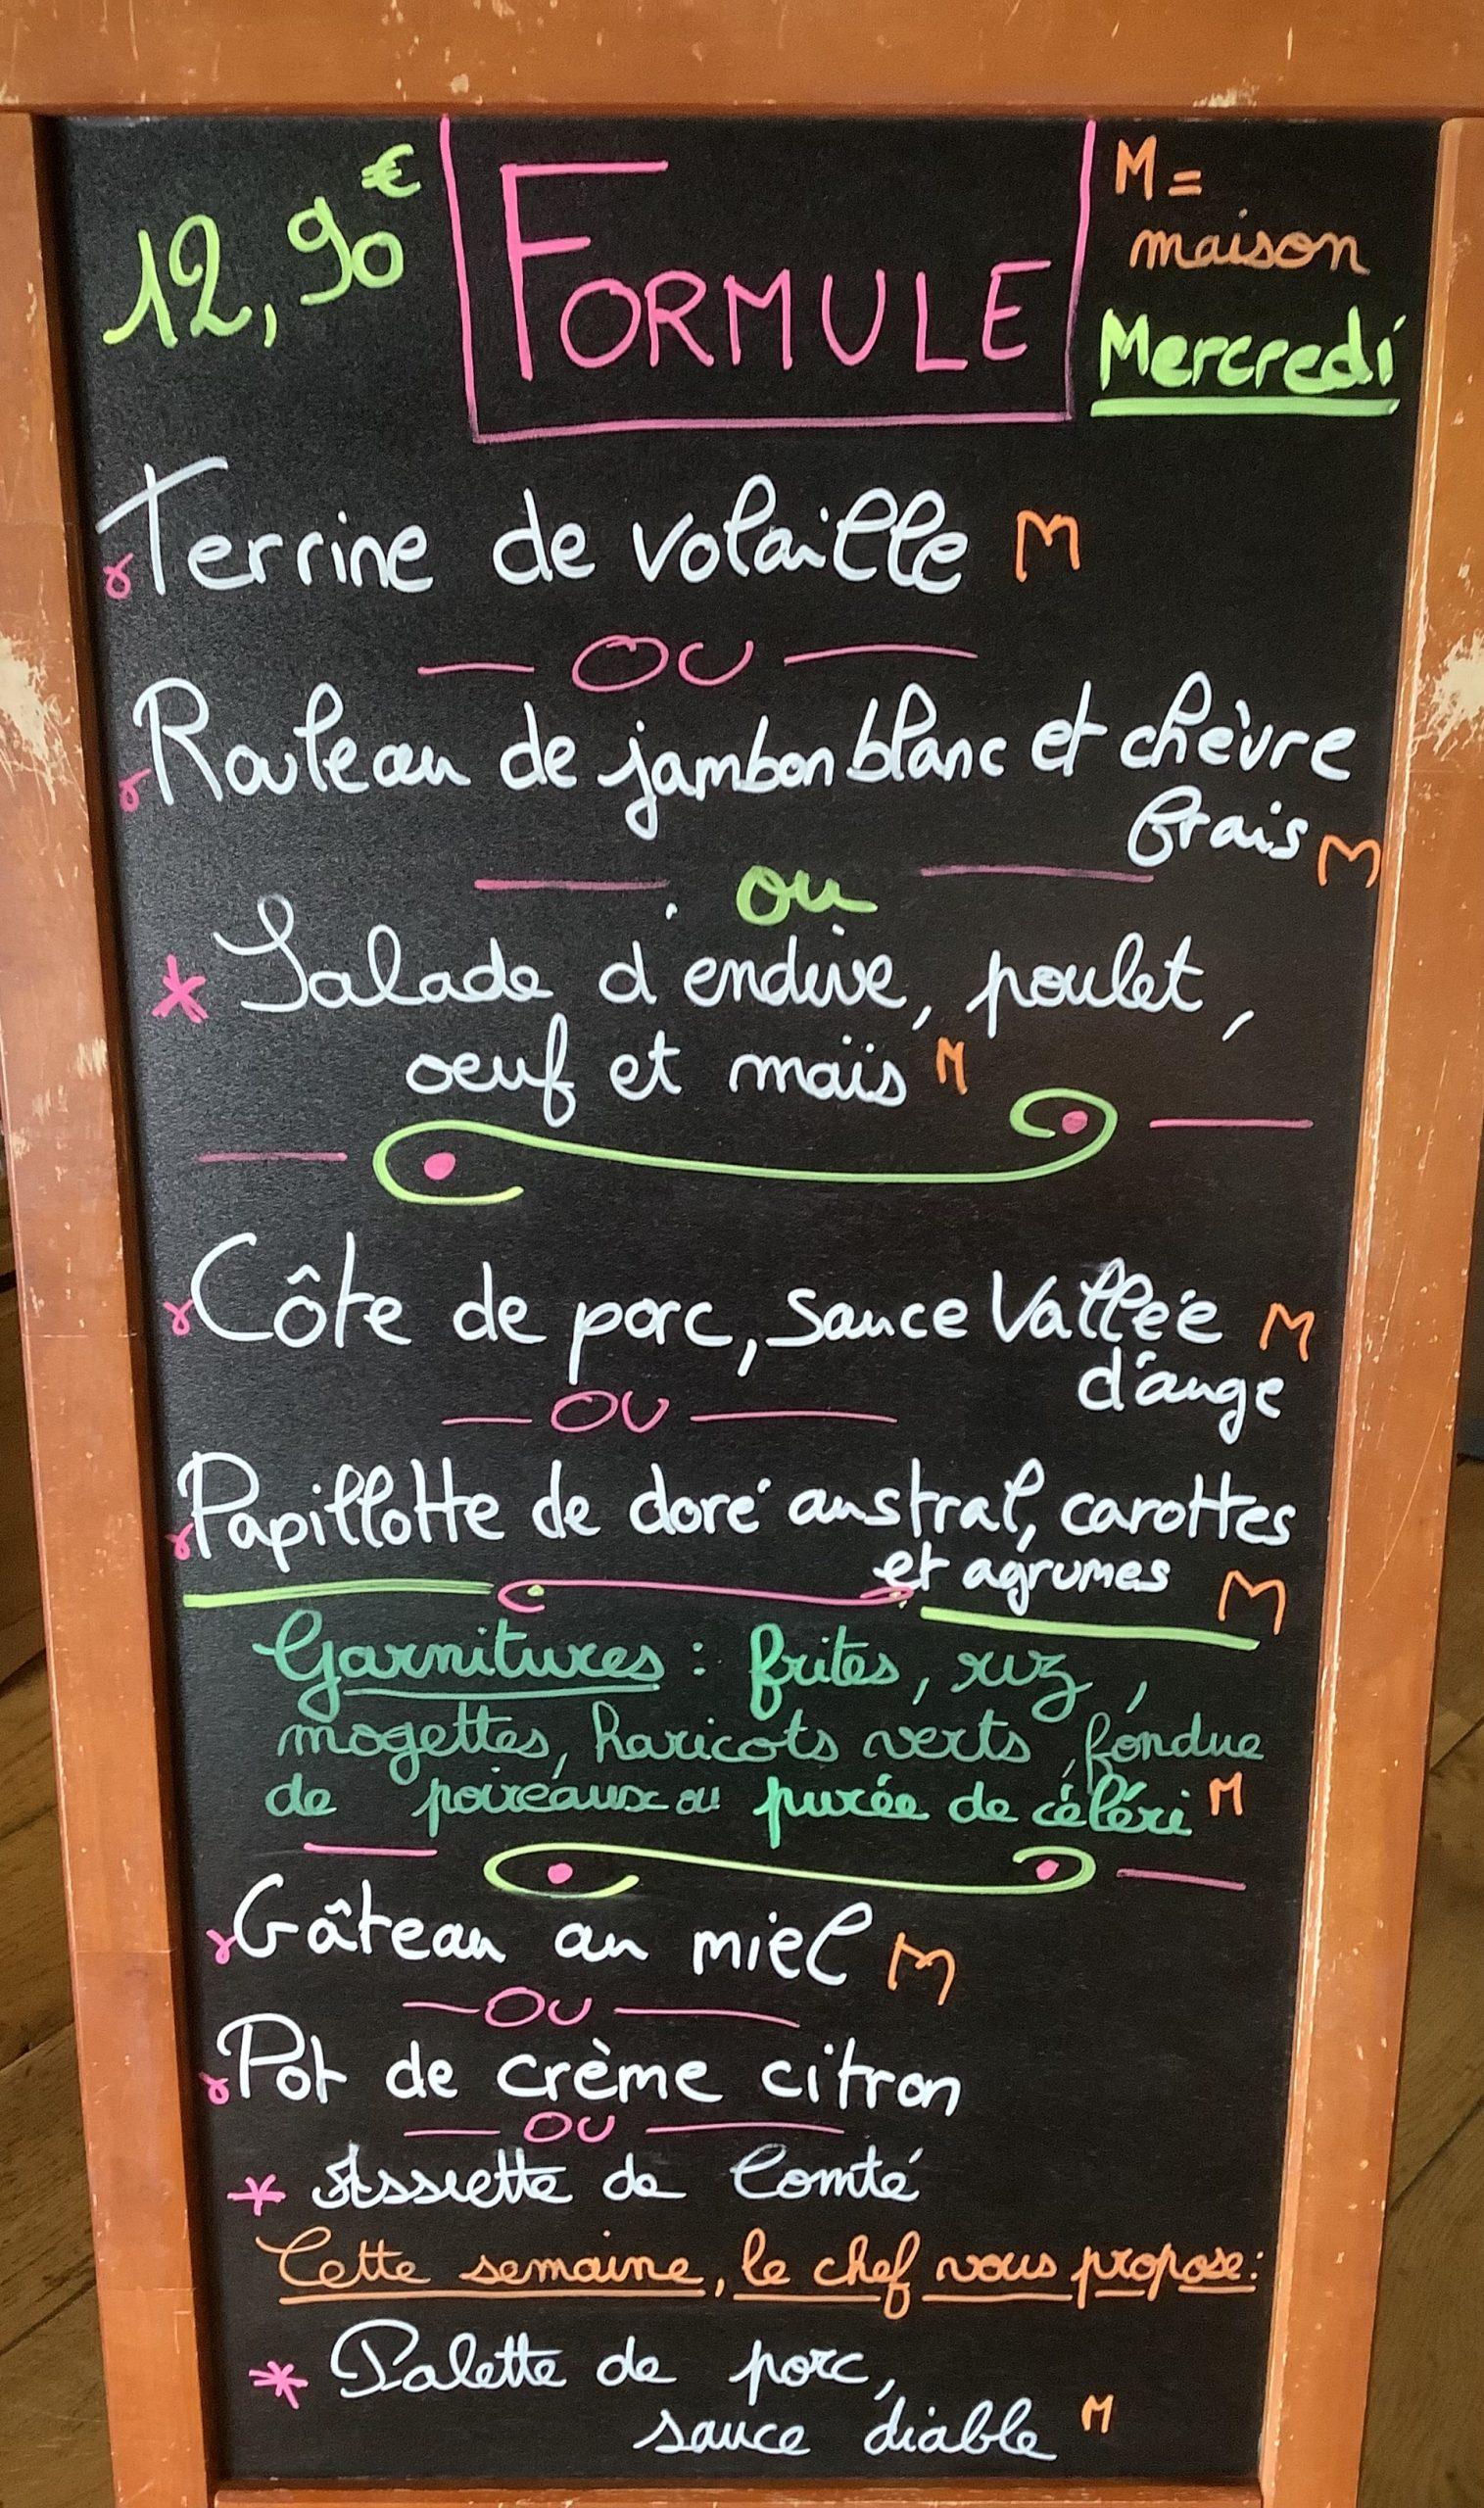 12,90€
FORMULE
M =
maison
Mercredi
Terrine de volaille M
OU
Rouleau de jambon blanc et chèvre
frais M
ou
* Salade d'endive, poulet,
oeuf et maïs M
Côte de porc, sauce Vallée M
d'auge
OU
Papillotte de doré austral, carottes
et agrumes M
Garnitures : frites, riz,
mogettes, haricots verts, fondue
de poireaux ou purée de céléri M
Gâteau au miel M
OU
Pot de crème citron
OU
* Assiette de Comté
Cette semaine, le chef vous propose :
* Palette de porc,
sauce diable M